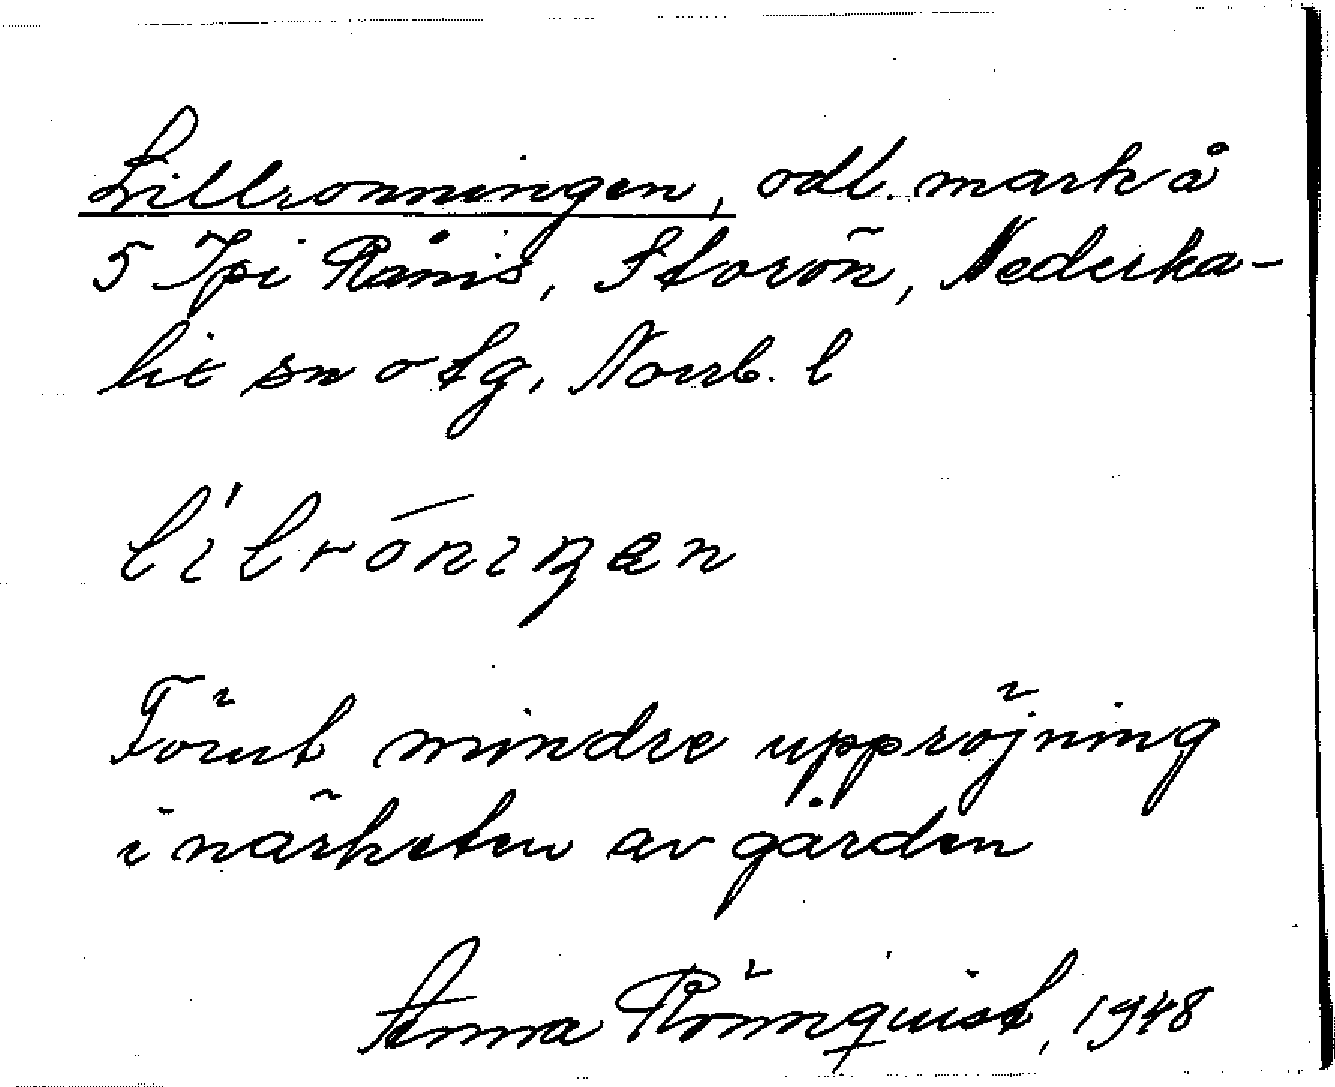 Lillronningen, odl. mark å
5 Tpi Rånis, Storön, Nederka-
lix sn o tg, Norrb. l
Förut mindre uppröjning
i närheten av gården
Anna Rönnquist, 1948